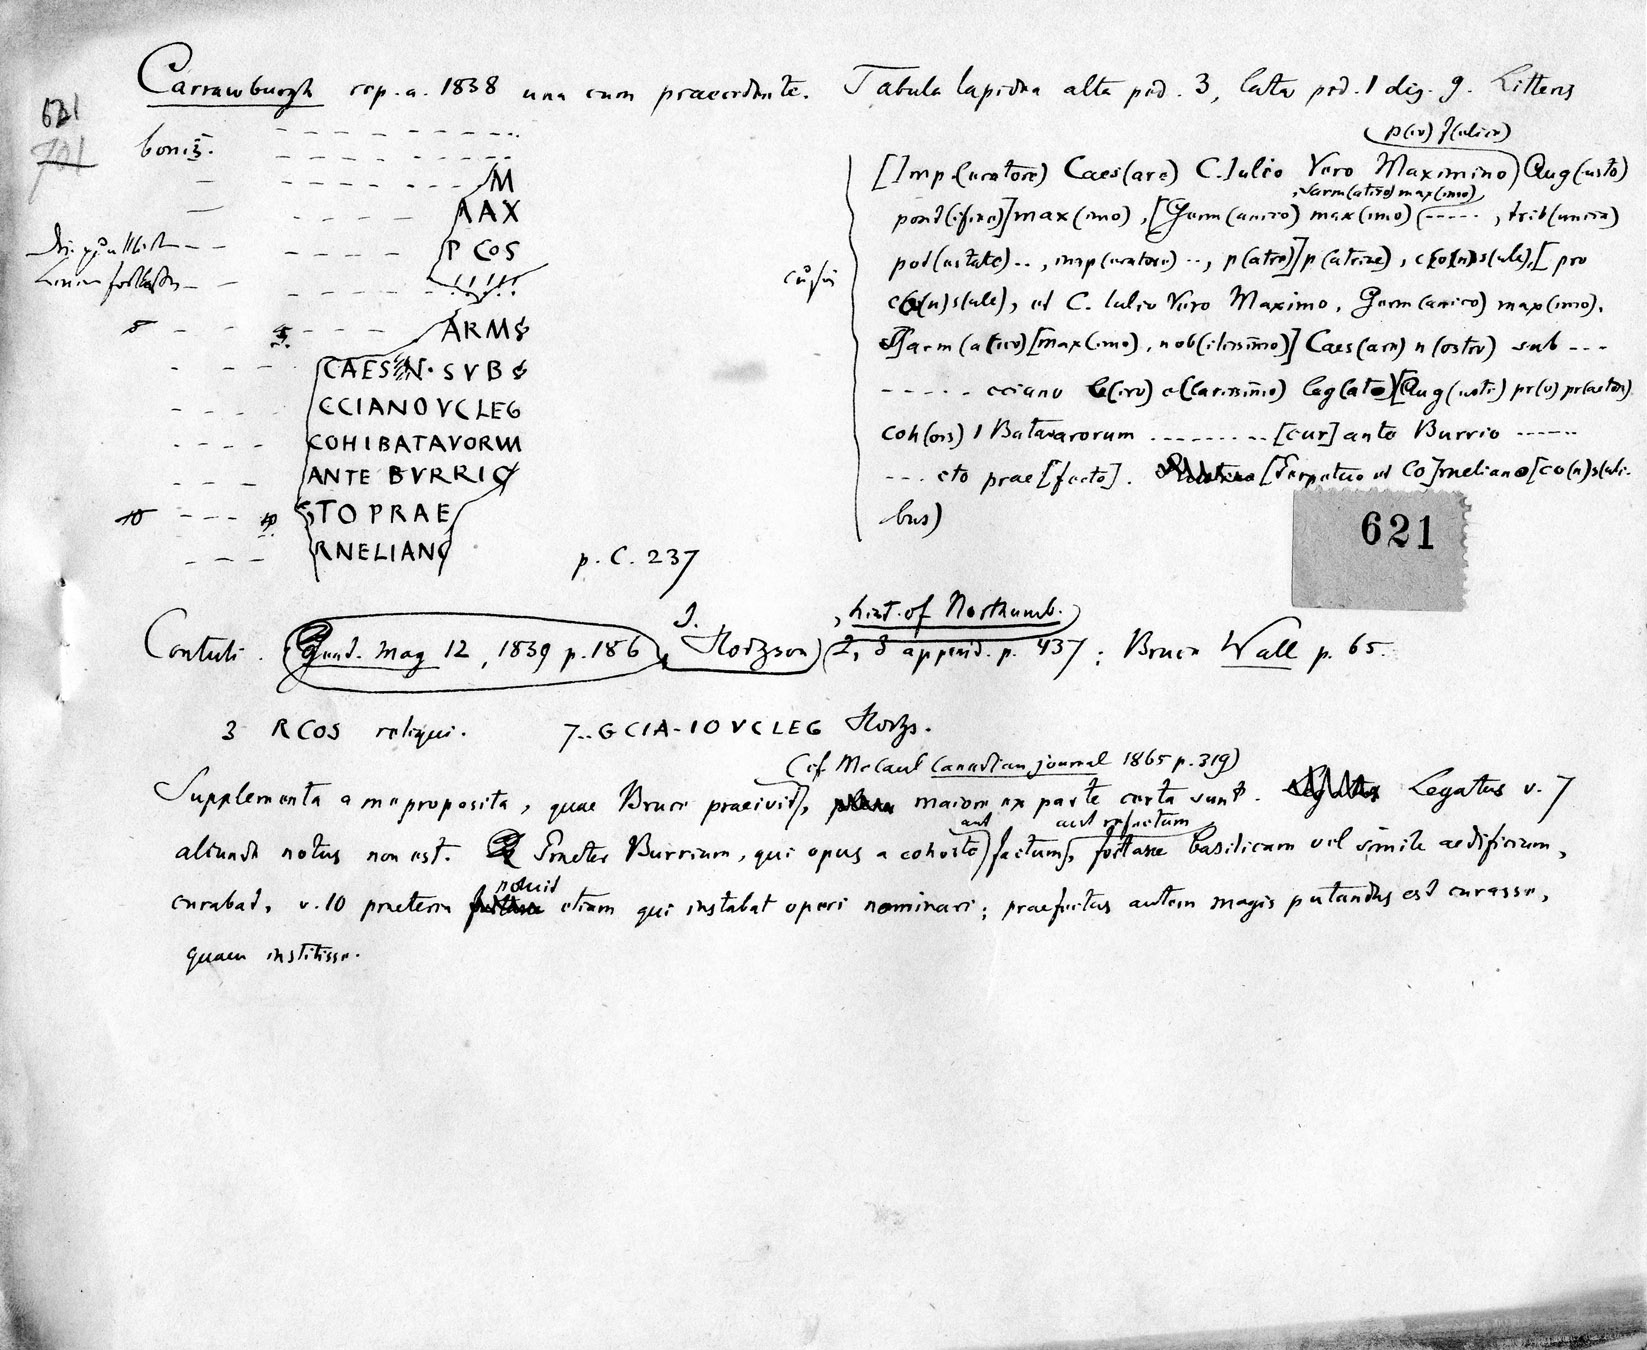 Carrawburgh rep. a. 1838 una cum praecedente. Tabula lapidea alta ped. 3, lata ped. 1 dig. 9. Litteris
621
701
bonis.
M
AAX
P COS
ARMS
CAES N· SVB
CCIANOVCLEG
COHIBATAVORVM
ANTE BVRRIO
5
TO PRAE
10
RNELIANO
p. C. 237
cursiv
p(io) f(elice)
[Imp(eratore) Caes(are) C. Iulio Vero Maximino) Aug(usto)
Sarm(atico) max(imo),
pont(ifice)] max(imo), [Germ(anico) max(imo) (-----, trib(unicia)
pot(estate) .., imp(eratore) .., p(atre)] p(atriae), co(n)s(ule), [pro
co(n)s(ule), et C. Iulio Vero Maximo, Germ(anico) max(imo),
Sarm(atico) [max(imo), nob(ilissimo)] Caes(are) n(ostro) sub ---
----- cciano v(iro) c(larissimo) leg(ato) [Aug(usti) pr(o) pr(aetore)
coh(ors) I Batavorum -------- [cur]ante Burrio -----
--- cto prae[fecto]. [Perpetuo et Co]rneliano [co(n)s(uli-
bus)
621
, hist. of Northumb.
Contuli. Gent. mag 12, 1839 p. 186, J. Hodgson 2, 3 append. p. 437; Bruce Wall p. 65.
3 RCOS reliqui. 7..GCIA-IOVCLEG Hodgs.
(cf. McCaul Canadian journal 1865 p. 319)
Supplementa a me proposita, quae Bruce praeivit, maiore ex parte certa sunt. Legatus v. 7
aut aut refectum
aliunde notus non est. Praeter Burrium, qui opus a cohorte factum, fortasse basilicam vel simile aedificium,
potuit
curabat, v. 10 praeterea etiam qui instabat operi nominari; praefectus autem magis putandus est curasse,
quam institisse.